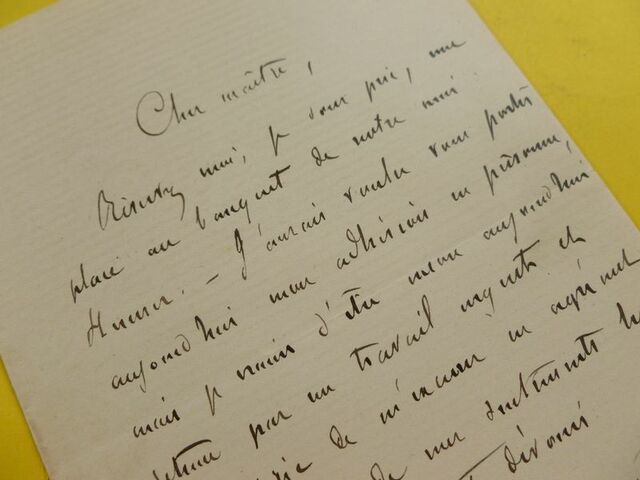 Cher maître,
Réservez moi, je vous prie, une
place au banquet de notre ami
J'aurais voulu vous porter
aujourd'hui mon adhésion en personne,
mais je viens d'être
par un travail urgent et
de m'excuser en agréant
de mes sentiments
dévoués